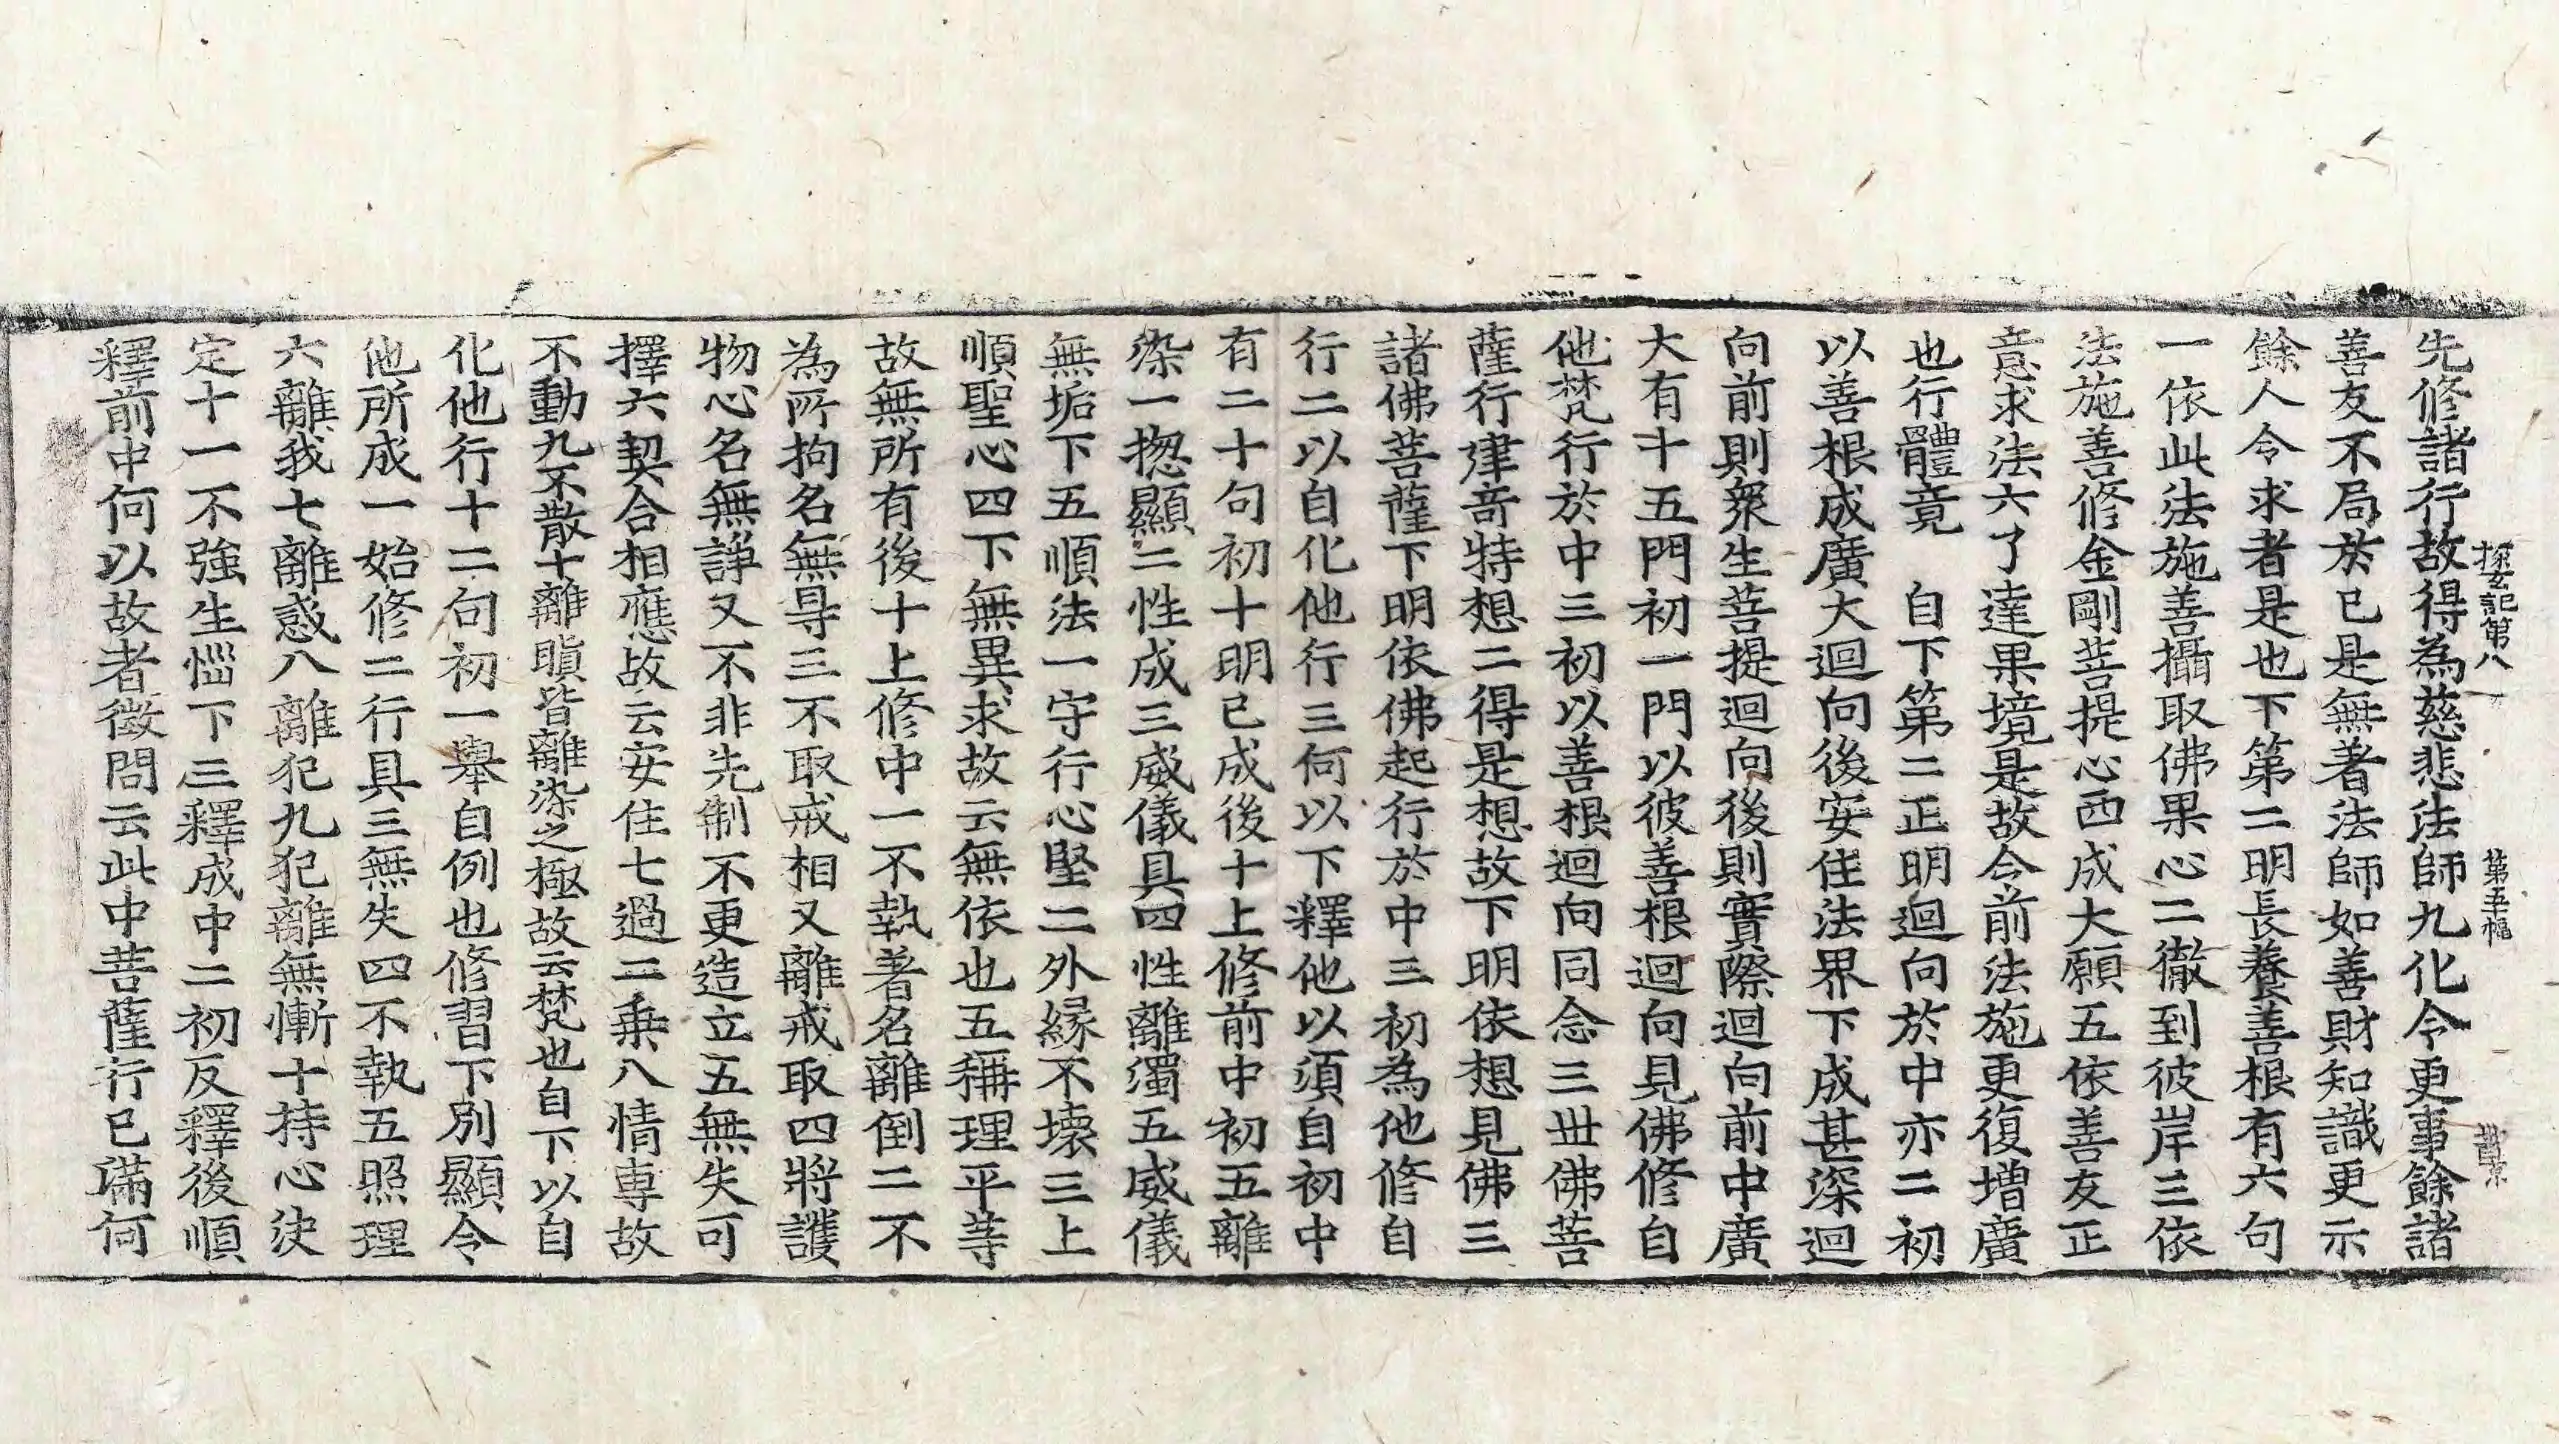 探玄記第八 第五幅
先修諸行故得為慈悲法師九化令更事餘諸
善友不局於已是無著法師如善財知識更示
餘人令求者是也下第二明長養善根有六句
一依此法施善攝取佛果心二徹到彼岸三依
法施善修金剛菩提心四成大願五依善友正
意求法六了達果境是故令前法施更復增廣
也行體竟 自下第二正明迴向於中亦二初
以善根成廣大迴向後安住法界下成甚深迴
向前則衆生菩提迴向後則實際迴向前中廣
大有十五門初一門以彼善根迴向見佛修自
他梵行於中三初以善根迴向同念三世佛菩
薩行建竒特想二得是想故下明依想見佛三
諸佛菩薩下明依佛起行於中三初為他修自
行二以自化他行三何以下釋他以須自初中
有二十句初十明已成後十上修前中初五離
染一揔顯二性成三威儀具四性離濁五威儀
無垢下五順法一守行心堅二外緣不壞三上
順聖心四下無異求故云無依也五稱理平等
故無所有後十上修中一不執著名離倒二不
為所拘名無㝵三不取戒相又離戒取四將護
物心名無諍又不非先制不更造立五無失可
擇六契合相應故云安住七過二乗八情專故
不動九不散十離瞋皆離染之極故云梵也自下以自
化他行十二句初一舉自例也修習下別顯令
他所成一始修二行具三無失四不執五照理
六離我七離惑八離犯九犯離無慚十持心决
定十一不強生惱下三釋成中二初反釋後順
釋前中何以故者徵問云此中菩薩行已滿何